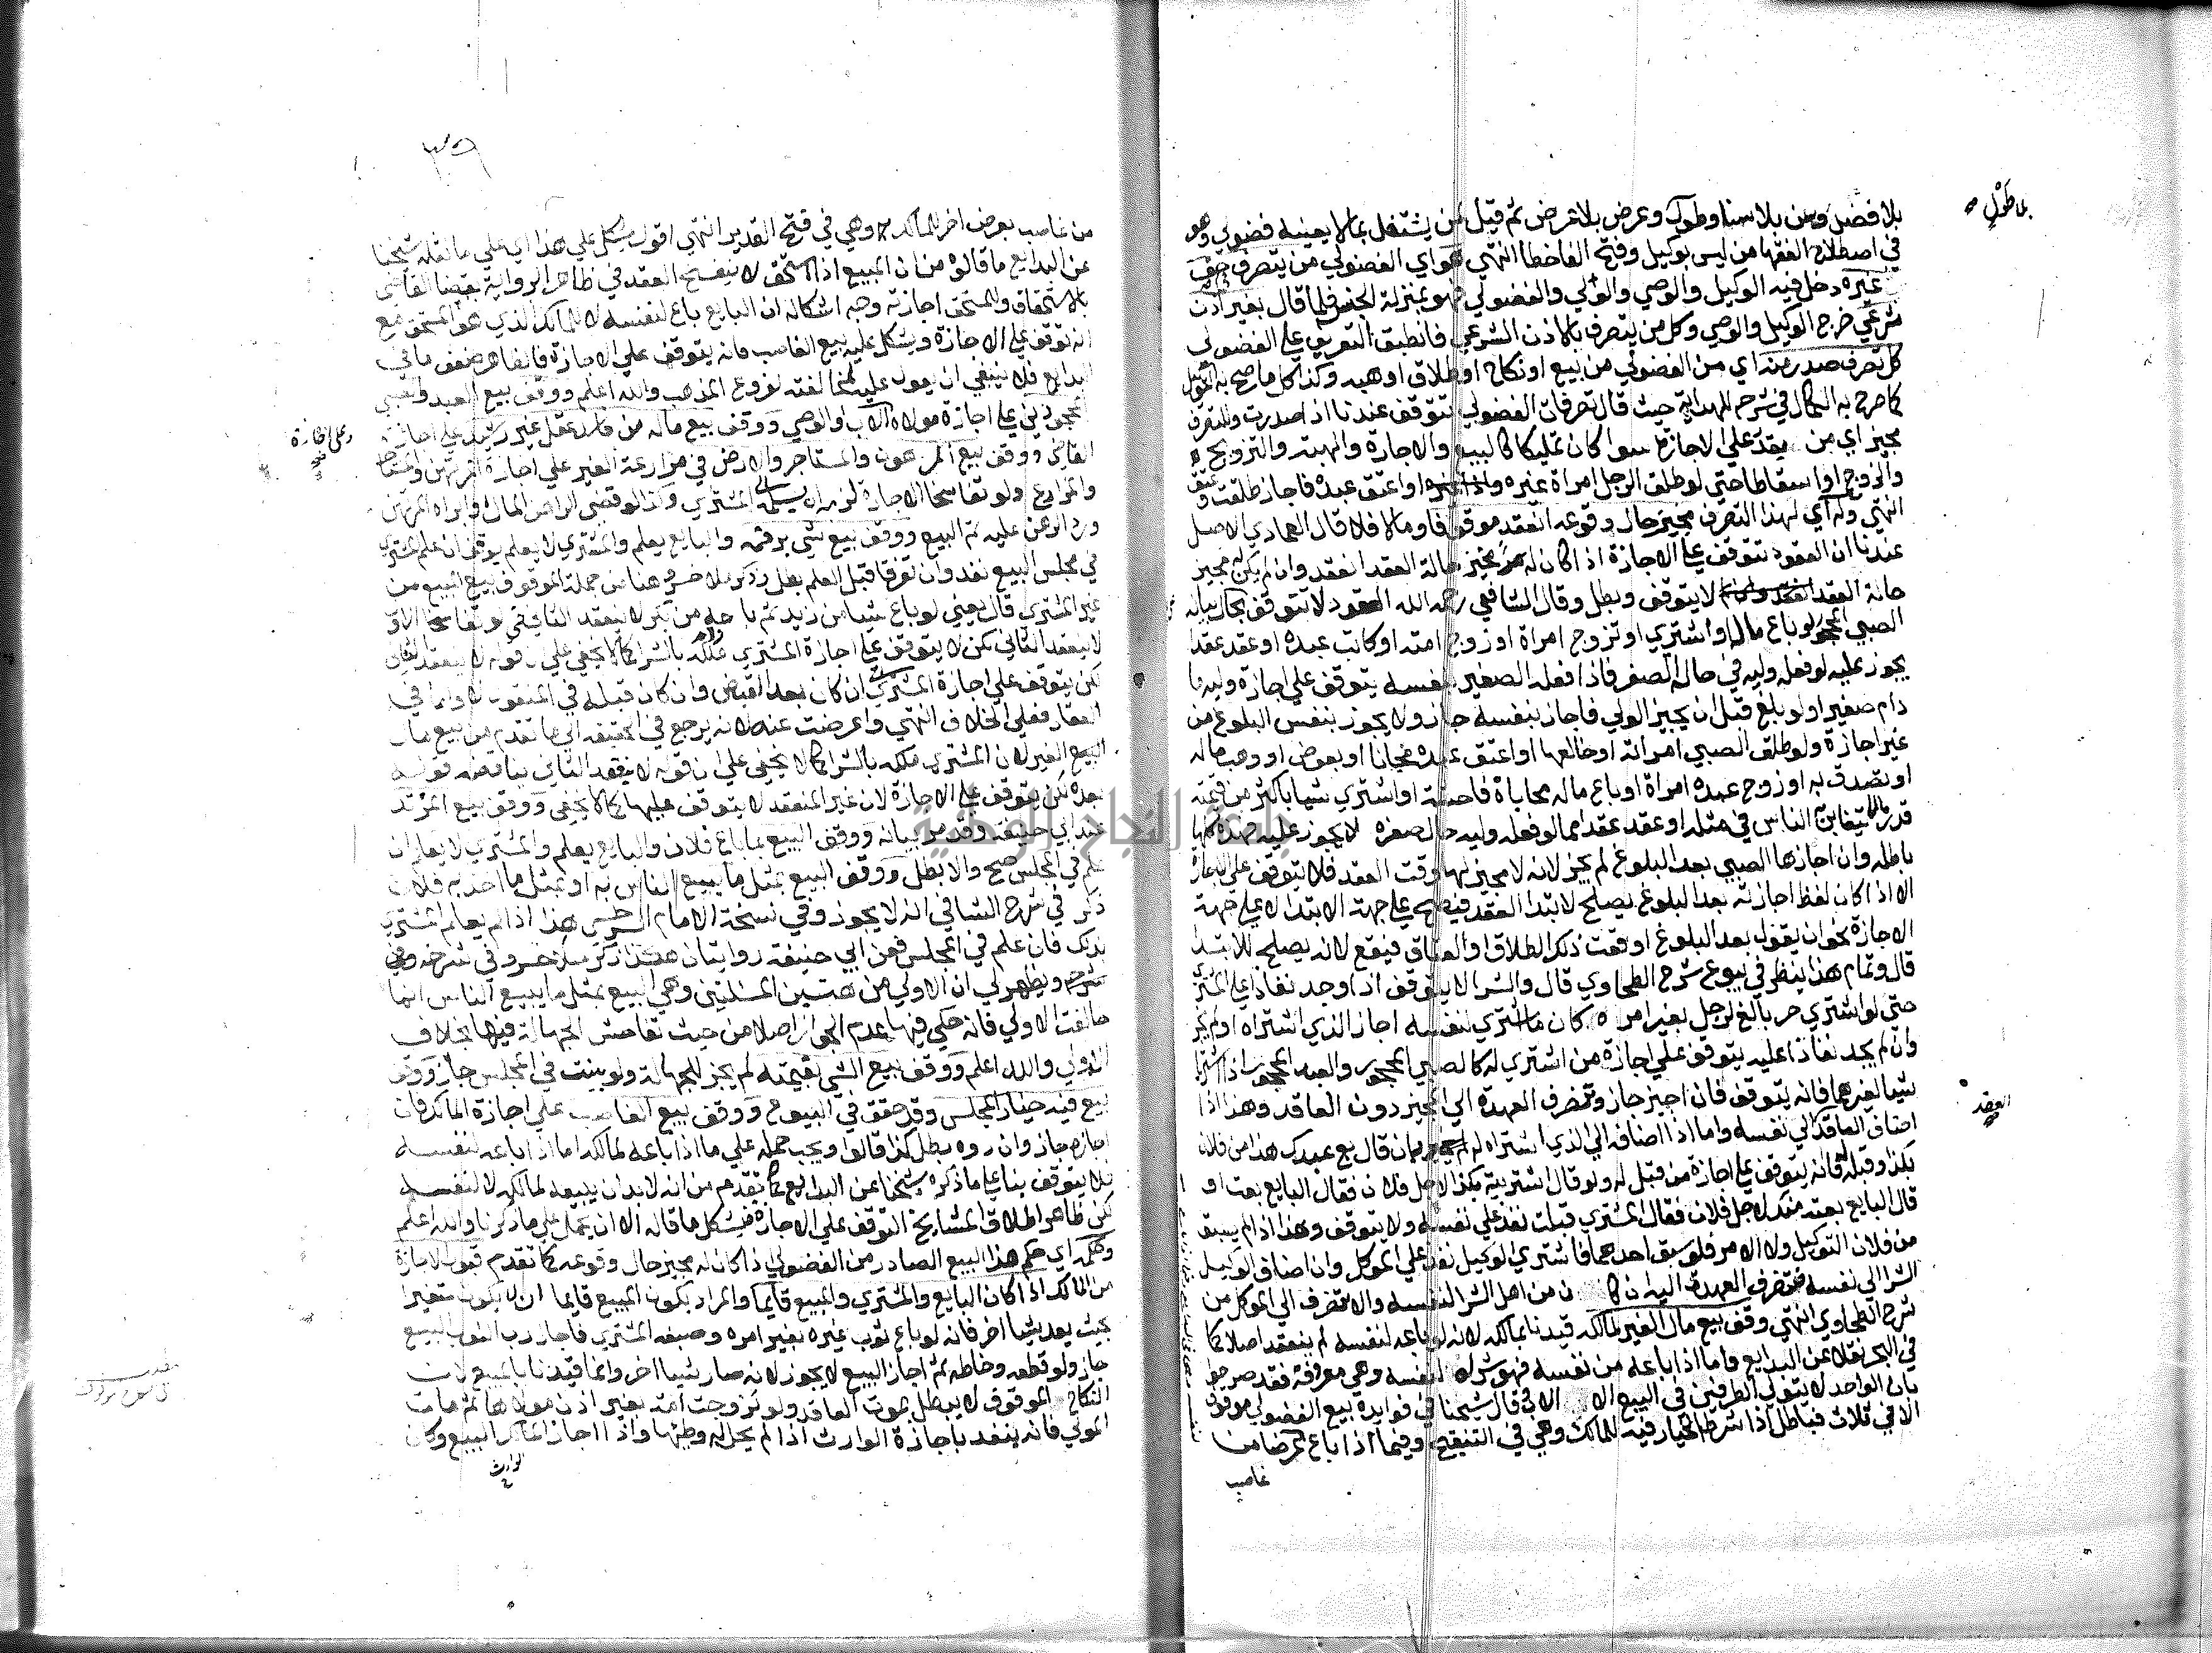 بلا فضل وسن بلا سنا وطول وعرض بلا عرض ثم قيل لمن يشتغل بما لا يعينه فضولي وهو
بلا طول
في اصطلاح الفقها من ليس بوكيل وفتح الفا خطا انتهي هو اي الفضولي من يتصرف في حق
غيره دخل فيه الوكيل والوصي والولي والفضولي فهو بمنزلة الجنس فلما قال بغير اذن
شرعي خرج الوكيل والوصي وكل من يتصرف بالاذن الشرعي فانطبق التعريف علي الفضولي
كل تصرف صدر منه اي من الفضولي من بيع او نكاح او طلاق او هبه وكذا كل ما صح به التوكيل
كما صرح به الكمال في شرحه للهداية حيث قال تصرفات الفضولي تتوقف عندنا اذا صدرت وللتصرف
مجيز اي من يقدر علي الاجازة سوا كان تمليكا كالبيع والاجارة والهبة والتزويج
والزوج او اسقاطا حتي لو طلق الرجل امراة غيره او اعتق عبده فاجاز طلقت وعتق
انتهي وله اي لهذا التصرف مجيز حال وقوعه انعقد موقوفا وما لا فلا قال العمادي الاصل
عندنا ان العقود تتوقف علي الاجازة اذا كان له مجيز حالة العقد انعقد وان لم يكن له مجيز
حالة العقد لا يتوقف وبطل وقال الشافعي رحمه الله العقود لا تتوقف بحال بيانه
الصبي المحجور لو باع ماله واشتري او تزوج امراة او زوج امته او كاتب عبده او عقد عقدا
يجوز عليه لو فعله وليه في حالة الصغر فاذا فعله الصغير بنفسه يتوقف علي اجازة وليه ما
دام صغيرا ولو بلغ قبل ان يجيز الولي فاجاز بنفسه جاز ولا يجوز بنفس البلوغ من
غير اجازة ولو طلق الصبي امراته او خالعها او اعتق عبده مجانا او بعوض او وهب ماله
او تصدق به او زوج عبده امراة او باع ماله محاباة فاحشة او اشتري شيا باكثر من قيمته
قدر مالا يتغابن الناس في مثله او عقد عقدا مما لو فعله وليه حال صغره لا يجوز عليه فهذه كلها
باطله وان اجازها الصبي بعد البلوغ لم يجز لانه لا مجيز لها وقت العقد فلا يتوقف علي الاجازة
الا اذا كان لفظ اجازته بعد البلوغ يصلح لابتدا العقد فيصح علي جهة الابتدا لا علي جهة
الاجازة نحو ان يقول بعد البلوغ اوقعت ذلك الطلاق او العتاق فيقع لانه يصلح للابتدا
قال وتمام هذا ينظر في بيوع شرح الطحاوي قال والشرا لا يتوقف اذا وجد نفاذا علي المشتري
حتي لو اشتري حر بالغ لرجل بغير امره كان ما اشتري لنفسه اجاز الذي اشتراه او لم يجز
وان لم يجد نفاذا عليه يتوقف علي اجازة من اشتري له كالصبي المحجور والعبد المحجور اذا اشتريا
شيا لغيرهما فانه يتوقف فان اجيز جاز وتنصرف العهدة الي المجيز دون العاقد وهذا اذا
اضاف العاقد الي نفسه واما اذا اضافه الي الذي اشتراه له بان قال بع عبدك هذا من فلان
العقد
بكذا وقبله فانه يتوقف علي اجازة من قبل له ولو قال اشتريته بكذا لاجل فلان فقال البايع بعت او
قال البايع بعته منك لاجل فلان فقال المشتري قبلت نفذ علي نفسه ولا يتوقف وهذا اذا لم يسبق
من فلان التوكيل ولا الامر فلو سبق احدهما فاشتري الوكيل نفذ علي الموكل وان اضاف الوكيل
الشرا الي نفسه فتنصرف العهدة اليه ان كان من اهل الشرا لنفسه والا تنصرف الي الموكل من
شرح الطحاوي انتهي وقف بيع مال الغير لمالكه قيدنا بمالكه لانه لو باعه لنفسه لم ينعقد اصلا كما
في البحر نقلا عن البدايع واما اذا باعه من نفسه فهو شراه لنفسه وهي معرافة فقد صرحوا
بان الواحد لا يتولي الطرفين في البيع الا الاب قال شيخنا في فوايده بيع الفضولي موقوف
الا في ثلاث فباطل اذا شرط الخيار فيه للمالك وهي في التنقيح وفيما اذا باع عرضا من
غاصب
٣٩
من غاصب بعرض اخر للمالك وهي في فتح القدير انتهي اقول يشكل علي هذا اي علي ما نقله شيخنا
عن البدايع ما قالوه من ان المبيع اذا استحق لا ينفسخ العقد في ظاهر الرواية بقضا القاضي
بالاستحقاق وللمستحق اجازته وجه اشكاله ان البايع باع لنفسه لا للمالك الذي هو المستحق مع
انه توقف علي الاجازة ويشكل عليه بيع الغاصب فانه يتوقف علي الاجازة فالظاهر ضعف ما في
البدايع فلا ينبغي ان يعول عليه لمخالفته لفروع المذهب والله اعلم ووقف بيع العبد والصبي
المحجورين علي اجازة مولاه الاب والوصي ووقف بيع ماله من فاسد عقل غير رشيد علي اجازة
القاضي ووقف بيع المرهون والمستاجر والارض في مزارعة الغير علي اجازة المرتهن والمستاجر
علي اجازة
والمزارع ولو تفاسخا الاجارة لزمه ان يسلمه المشتري وكذا لو قضي الراهن المال او ابراه المرتهن
ورد الرهن عليه تم البيع ووقف بيع شي برقمه والبايع يعلم والمشتري لا يعلم يوقف ان علم المشتري
في مجلس البيع نفذ وان تفرقا قبل العلم بطل وذكر ملا خسرو هنا من جملة الموقوف بيع المبيع من
غير المشتري قال يعني لو باع شيا من زيد ثم باعه من بكر لا ينعقد الثاني حتي لو تفاسخا الاول
لا ينعقد الثاني لكن يتوقف علي اجازة المشتري ملكه بالشرا كما لا يخفي علي قوله لا ينعقد الثاني
لكن يتوقف علي اجازة المشتري ان كان بعد القبض وان كان قبله في المنقول لا واما في
العقار فعلي الخلاف انتهي واعرضت عنه لانه يرجع في الحقيقة الي ما تقدم من بيع مال
البيع الغير لان المشتري ملكه بالشرا كما لا يخفي علي ان قوله لا ينعقد الثاني يناقضه قوله
بعده لكن يتوقف علي الاجازة لان غير المنعقد لا يتوقف عليها كما لا يخفي ووقف بيع المرتد
عند ابي حنيفة وقد مر بيانه ووقف البيع بما باع فلان والبايع يعلم والمشتري لا يعلم ان
علم في المجلس صح والا بطل ووقف البيع بمثل ما يبيع الناس به او بمثل ما اخذ به فلان
ذكر في شرح الشافي انه لا يجوز وفي نسخة الامام السرخسي هذا اذا لم يعلم المشتري
بذلك فان علم في المجلس فعن ابي حنيفة روايتان هكذا ذكر ملا خسرو في شرحه
ويظهر لي ان الاولي من هتين المسئلتين وهي البيع بمثل ما يبيع الناس انما
خالفت الاولي فانه حكي فيها عدم الجواز اصلا من حيث تفاحش الجهالة فيها بخلاف
الاولي والله اعلم ووقف بيع الشي بقيمته لم يجز للجهالة ولو بينت في المجلس جاز ووقف
بيع فيه خيار المجلس وقد حقق في البيوع ووقف بيع الغاصب علي اجازة المالك فان
اجازه جاز وان رده بطل كذا قالوا ويجب حمله علي ما اذا باعه لمالكه اما اذا باعه لنفسه
فلا يتوقف بنا علي ما ذكره شيخنا عن البدايع كما تقدم من انه لابد ان يبيعه لمالكه لا لنفسه
لكن ظاهر اطلاق المشايخ التوقف علي الاجازة فيشكل ما قاله الا ان يحمل علي ما ذكرنا والله اعلم
وحكمه اي حكم هذا البيع الصادر من الفضولي اذا كان له مجيز حال وقوعه كما تقدم قبول الاجازة
من المالك اذا كان البايع والمشتري والمبيع قايما والمراد بكون المبيع قايما ان لا يكون متغيرا
بحيث يعد شيا اخر فانه لو باع ثوب غيره بغير امره وصبغه المشتري فاجاز رب الثوب البيع
جاز ولو قطعه وخاطه ثم اجاز البيع لا يجوز لانه صار شيا اخر وانما قيدنا بالبيع لان
النكاح الموقوف لا يبطل بموت العاقد ولو تزوجت امته بغير اذن مولاها ثم مات
المولي فانه ينفذ باجازة الوارث اذا لم يحل له وطئها واذا اجاز المالك البيع وكان
الوارث
جامعة النجاح الوطنية